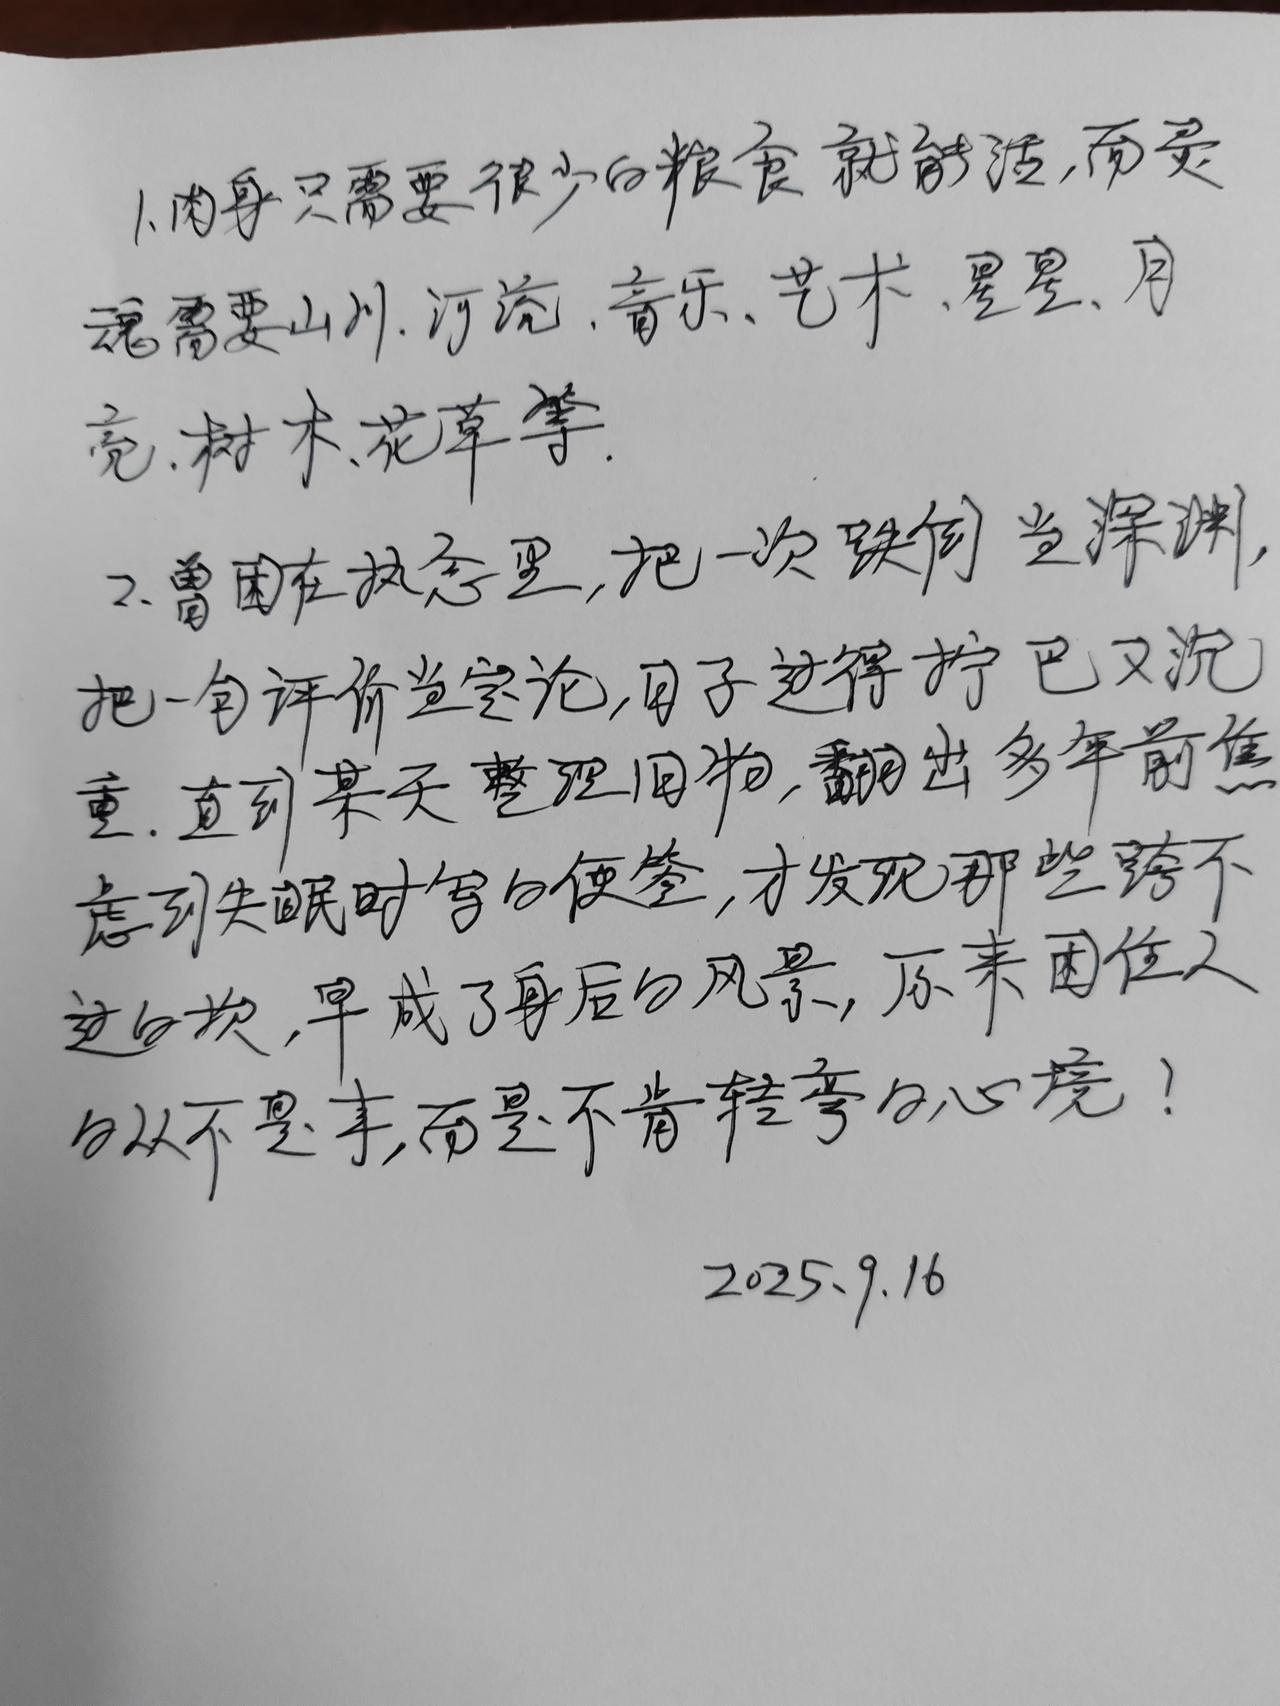 1、肉身只需要很少的粮食就能活,而灵
魂需要山川、河流、音乐、艺术、星星、月
亮、树木、花草等.
2、曾困在执念里,把一次跌倒当深渊,
把一句评价当定论,日子过得拧巴又沉
重.直到某天整理旧物,翻出多年前焦
虑到失眠时写的便签,才发现那些跨不
过的坎,早成了身后的风景,原来困住人
的从不是事,而是不肯转弯的心境!
2025.9.16